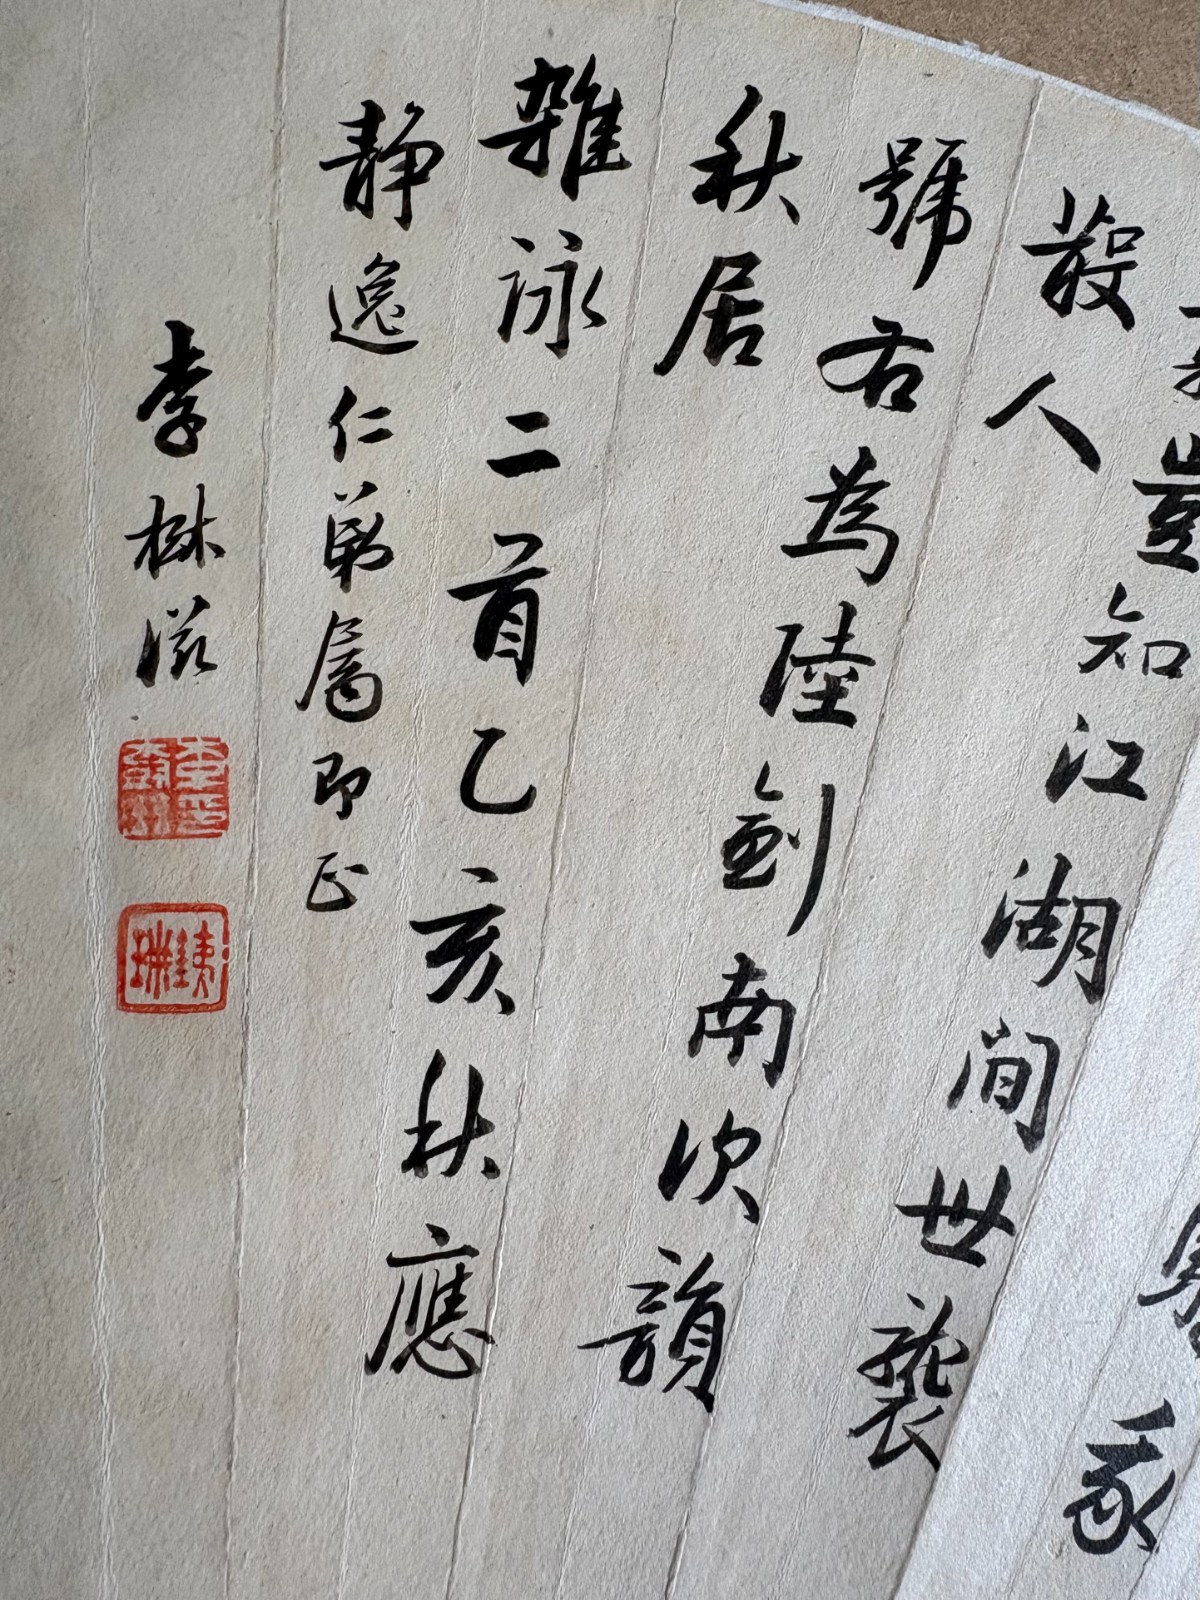 豈知江湖間世襲
散人
號右為陸劍南次韻
秋居
雜詠二首乙亥秋應
靜逸仁弟屬即正
李林滋